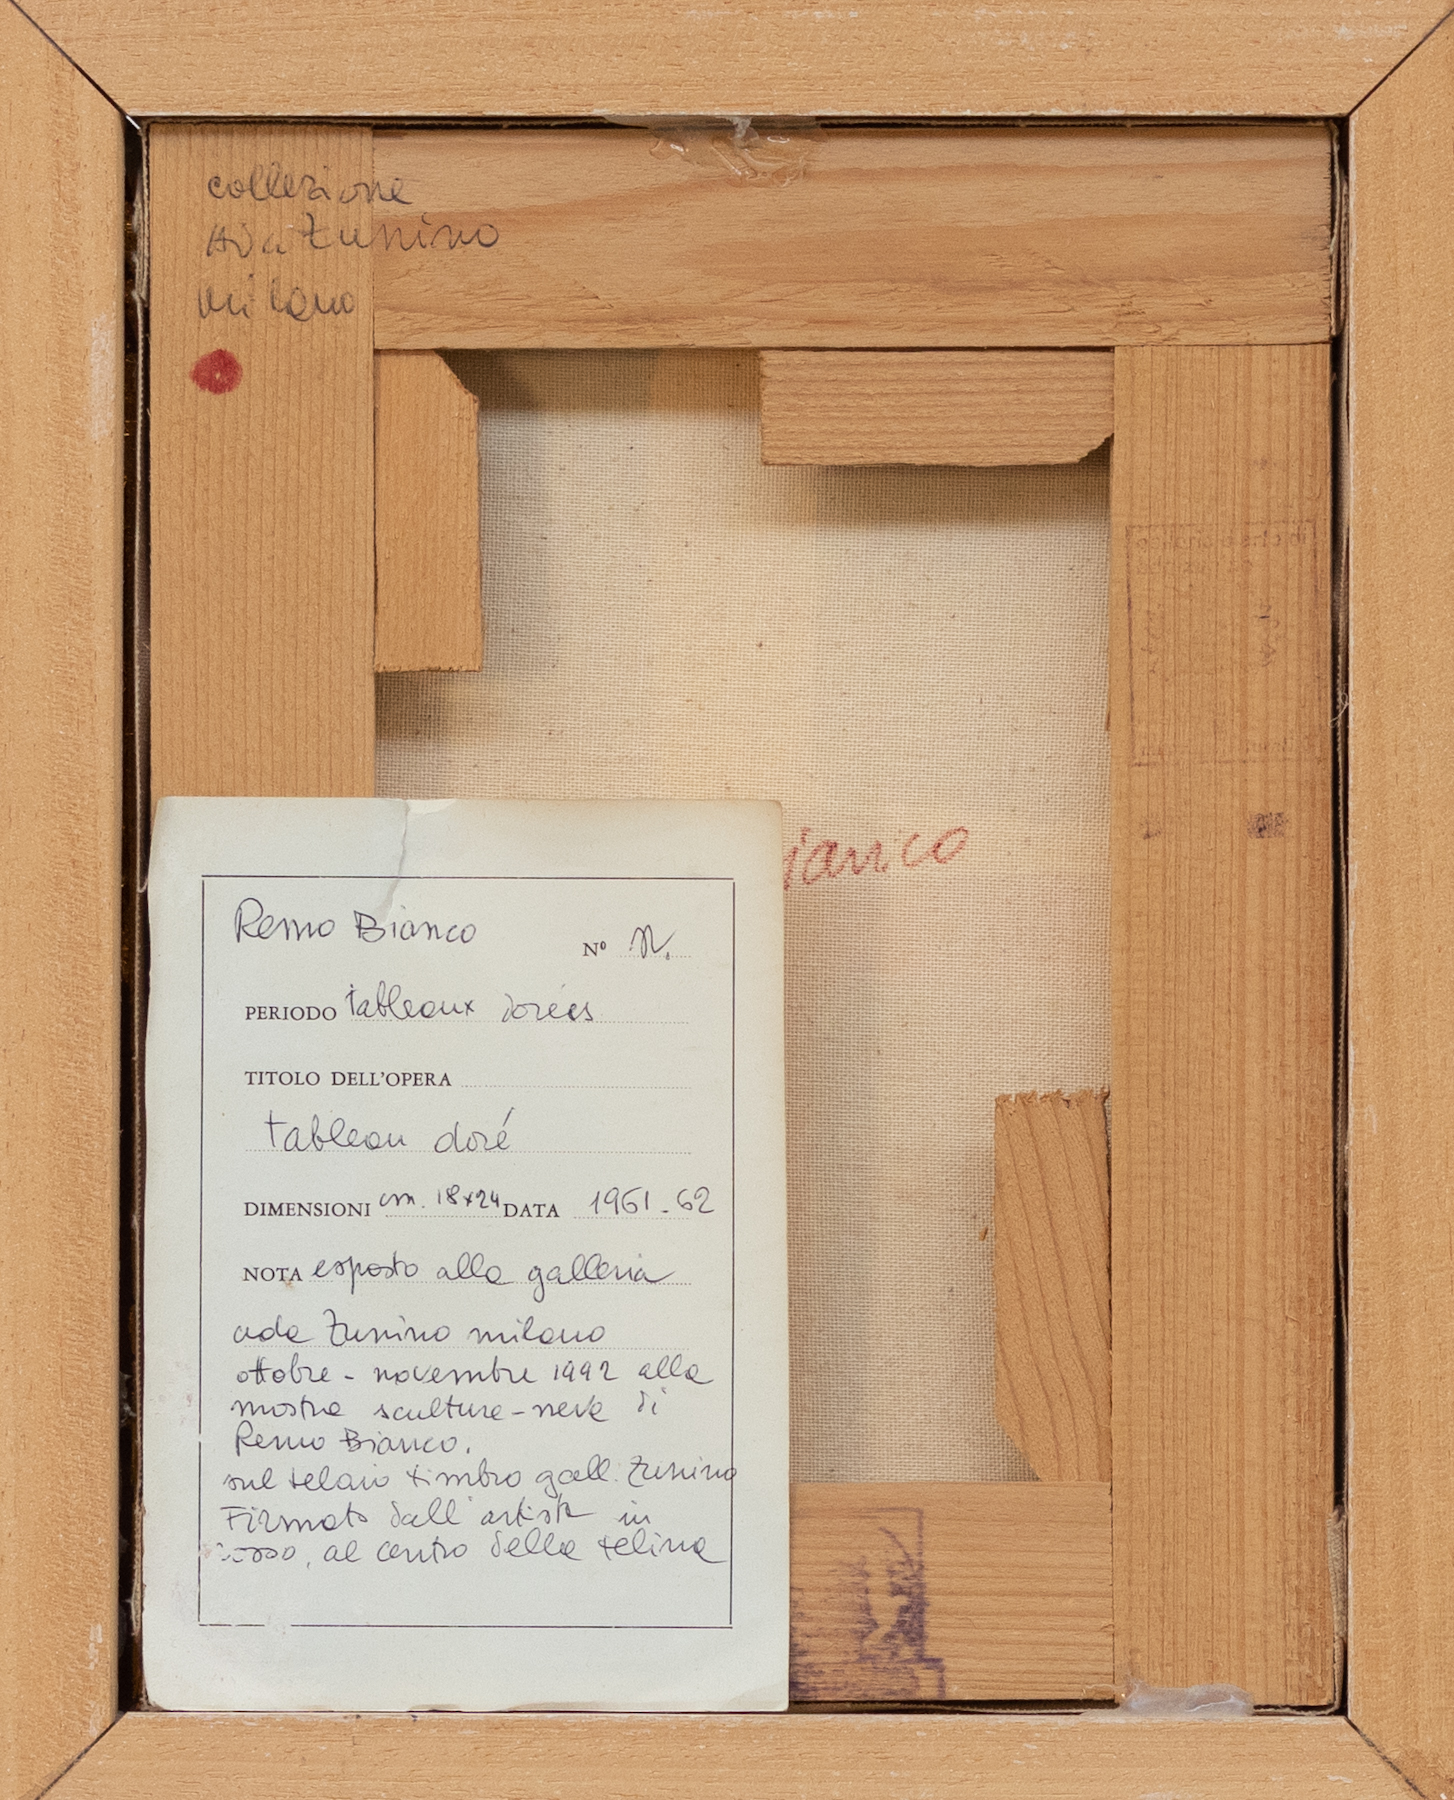 collezione
Ada Zunino
milano
ianco
Remo Bianco
Nº N.
PERIODO tableaux dorées
TITOLO DELL'OPERA
tableau doré
DIMENSIONI cm. 18x24 DATA 1961-62
NOTA esposto alla galleria
ada Zunino milano
ottobre - novembre 1992 alla
mostra sculture-neve di
Remo Bianco.
sul telaio timbro gall. Zunino
Firmato dall'artista in
rosso, al centro della telina